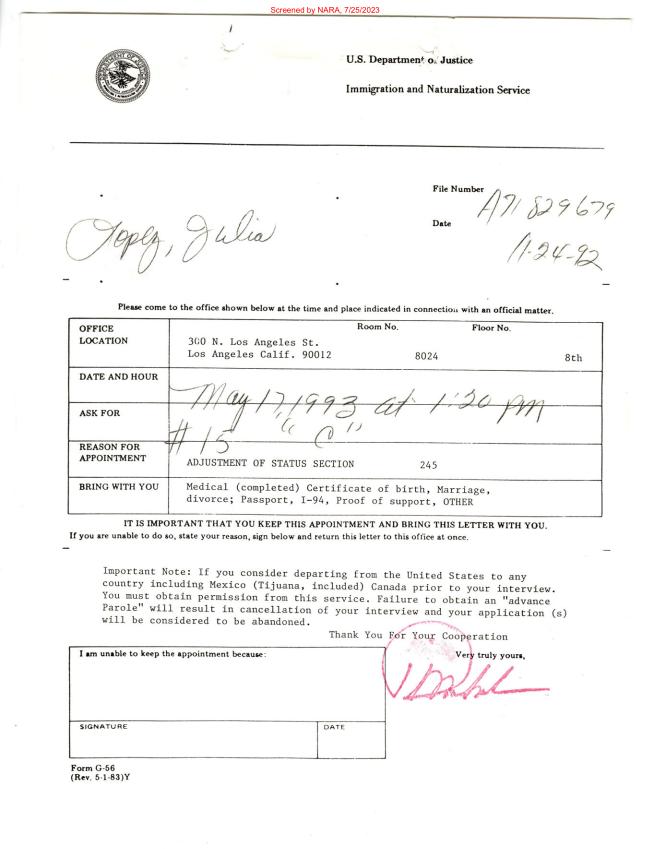 Screened by NARA, 7/25/2023
U.S. Department of Justice
Immigration and Naturalization Service
File Number A71 829679
Lopez, Julia
Date 11-24-92
Please come to the office shown below at the time and place indicated in connection with an official matter.
OFFICE LOCATION
Room No. Floor No.
300 N. Los Angeles St.
Los Angeles Calif. 90012 8024 8th
DATE AND HOUR
May 17, 1993 at 1:20 PM
ASK FOR
#15 "C"
REASON FOR APPOINTMENT
ADJUSTMENT OF STATUS SECTION 245
BRING WITH YOU
Medical (completed) Certificate of birth, Marriage,
divorce; Passport, I-94, Proof of support, OTHER
IT IS IMPORTANT THAT YOU KEEP THIS APPOINTMENT AND BRING THIS LETTER WITH YOU.
If you are unable to do so, state your reason, sign below and return this letter to this office at once.
Important Note: If you consider departing from the United States to any
country including Mexico (Tijuana, included) Canada prior to your interview.
You must obtain permission from this service. Failure to obtain an "advance
Parole" will result in cancellation of your interview and your application (s)
will be considered to be abandoned.
Thank You For Your Cooperation
I am unable to keep the appointment because:
Very truly yours,
SIGNATURE
DATE
Form G-56
(Rev. 5-1-83)Y